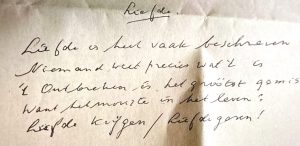 Liefde.
Liefde is heel vaak beschreven
Niemand weet precies wat 't is
't Ontbreken is het grootst gemis
Want het mooiste in het leven:
Liefde krijgen / Liefde geven!